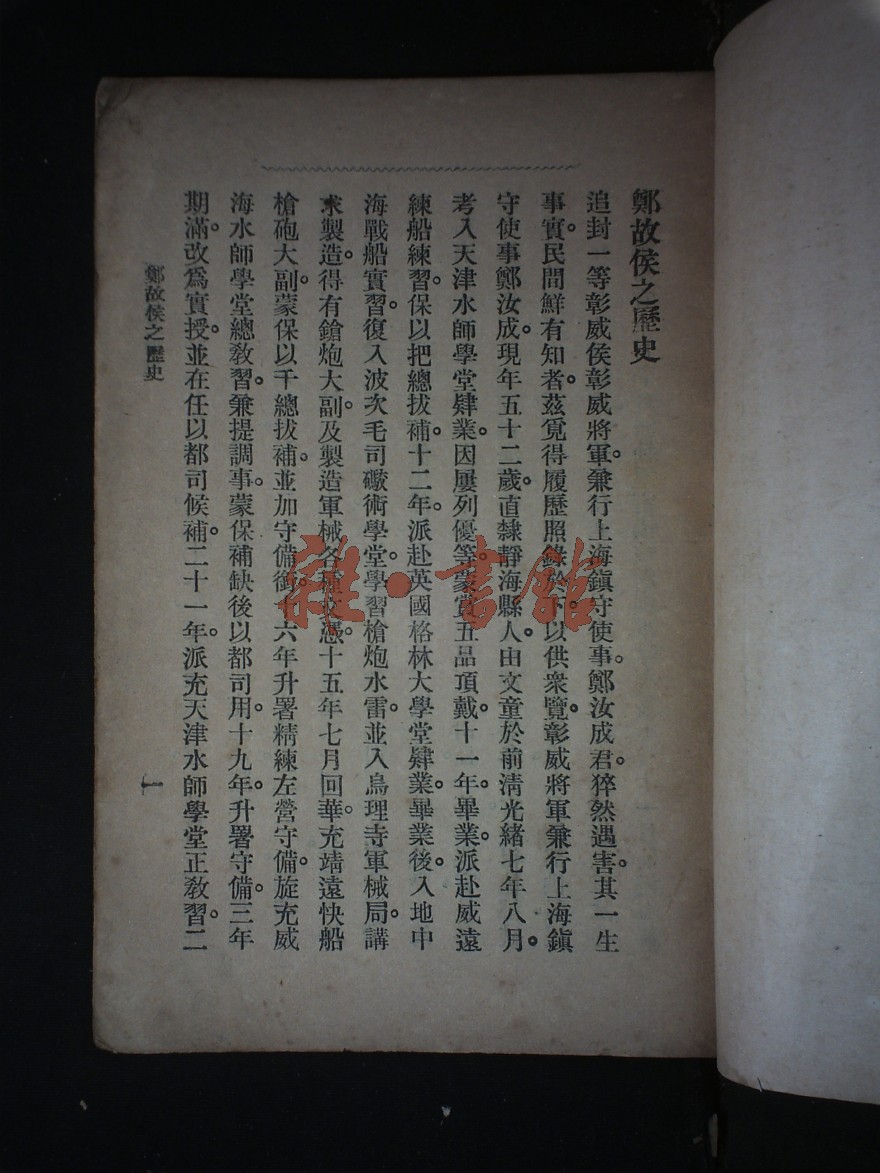 鄭故侯之歷史
追封一等彰威侯彰威將軍。兼行上海鎮守使事。鄭汝成君。猝然遇害。其一生
事實。民間鮮有知者。茲覓得履歷照錄於下。以供衆覽。彰威將軍兼行上海鎮
守使事鄭汝成。現年五十二歲。直隸靜海縣人。由文童於前清光緒七年八月。
考入天津水師學堂肄業。因屢列優等。蒙賞五品頂戴。十一年。畢業。派赴威遠
練船練習。保以把總拔補。十二年。派赴英國格林大學堂肄業。畢業後。入地中
海戰船實習。復入波次毛司礮術學堂。學習槍炮水雷。並入烏理寺軍械局。講
求製造。得有鎗炮大副。及製造軍械各種文憑。十五年七月回華。充靖遠快船
槍砲大副。蒙保以千總拔補。並加守備銜。十六年升署精練左營守備。旋充威
海水師學堂總教習。兼提調事。蒙保補缺後以都司用。十九年。升署守備。三年
期滿。改爲實授。並在任以都司候補。二十一年。派充天津水師學堂正教習。二
鄭故侯之歷史
一
雜·書館